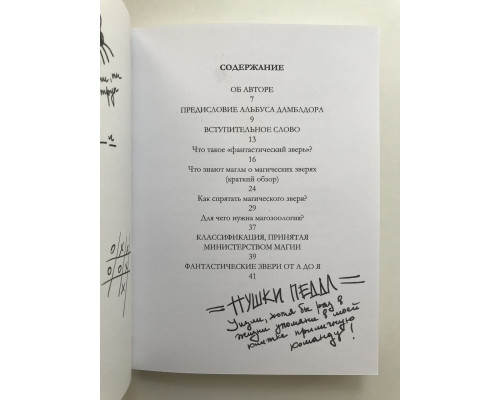 СОДЕРЖАНИЕ
ОБ АВТОРЕ
7
ПРЕДИСЛОВИЕ АЛЬБУСА ДАМБЛДОРА
9
ВСТУПИТЕЛЬНОЕ СЛОВО
13
Что такое «фантастический зверь»?
16
Что знают маглы о магических зверях
(краткий обзор)
24
Как спрятать магического зверя?
29
Для чего нужна магозоология?
37
КЛАССИФИКАЦИЯ, ПРИНЯТАЯ
МИНИСТЕРСТВОМ МАГИИ
39
ФАНТАСТИЧЕСКИЕ ЗВЕРИ ОТ А ДО Я
41
=ПУШКИ ПЕДДЛ=
Уизли, хотя бы раз в
жизни упомяни в моей
книжке приличную
команду!